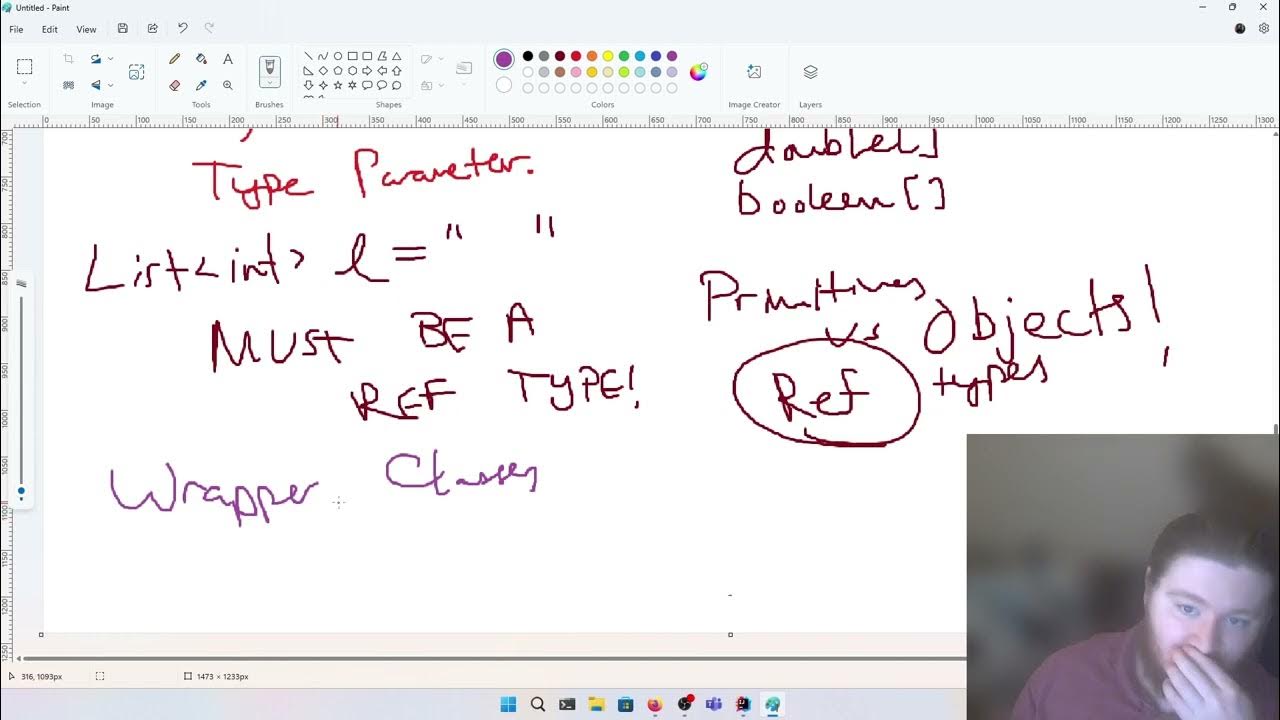 Untitled - Paint
File Edit View
Selection Image Tools Brushes Shapes Colors Image Creator Layers
0 50 100 150 200 250 300 350 400 450 500 550 600 650 700 750 800 850 900 950 1000 1050 1100 1150 1200 1250 1300
700
750
800
850
900
950
1000
1050
1100
1150
1200
1250
Type Parameter.
List<int> l = " "
MUST BE A
REF TYPE!
Wrapper Classes
double[]
boolean[]
Primitives
vs Objects!
Ref types
316, 1093px 1473 × 1233px